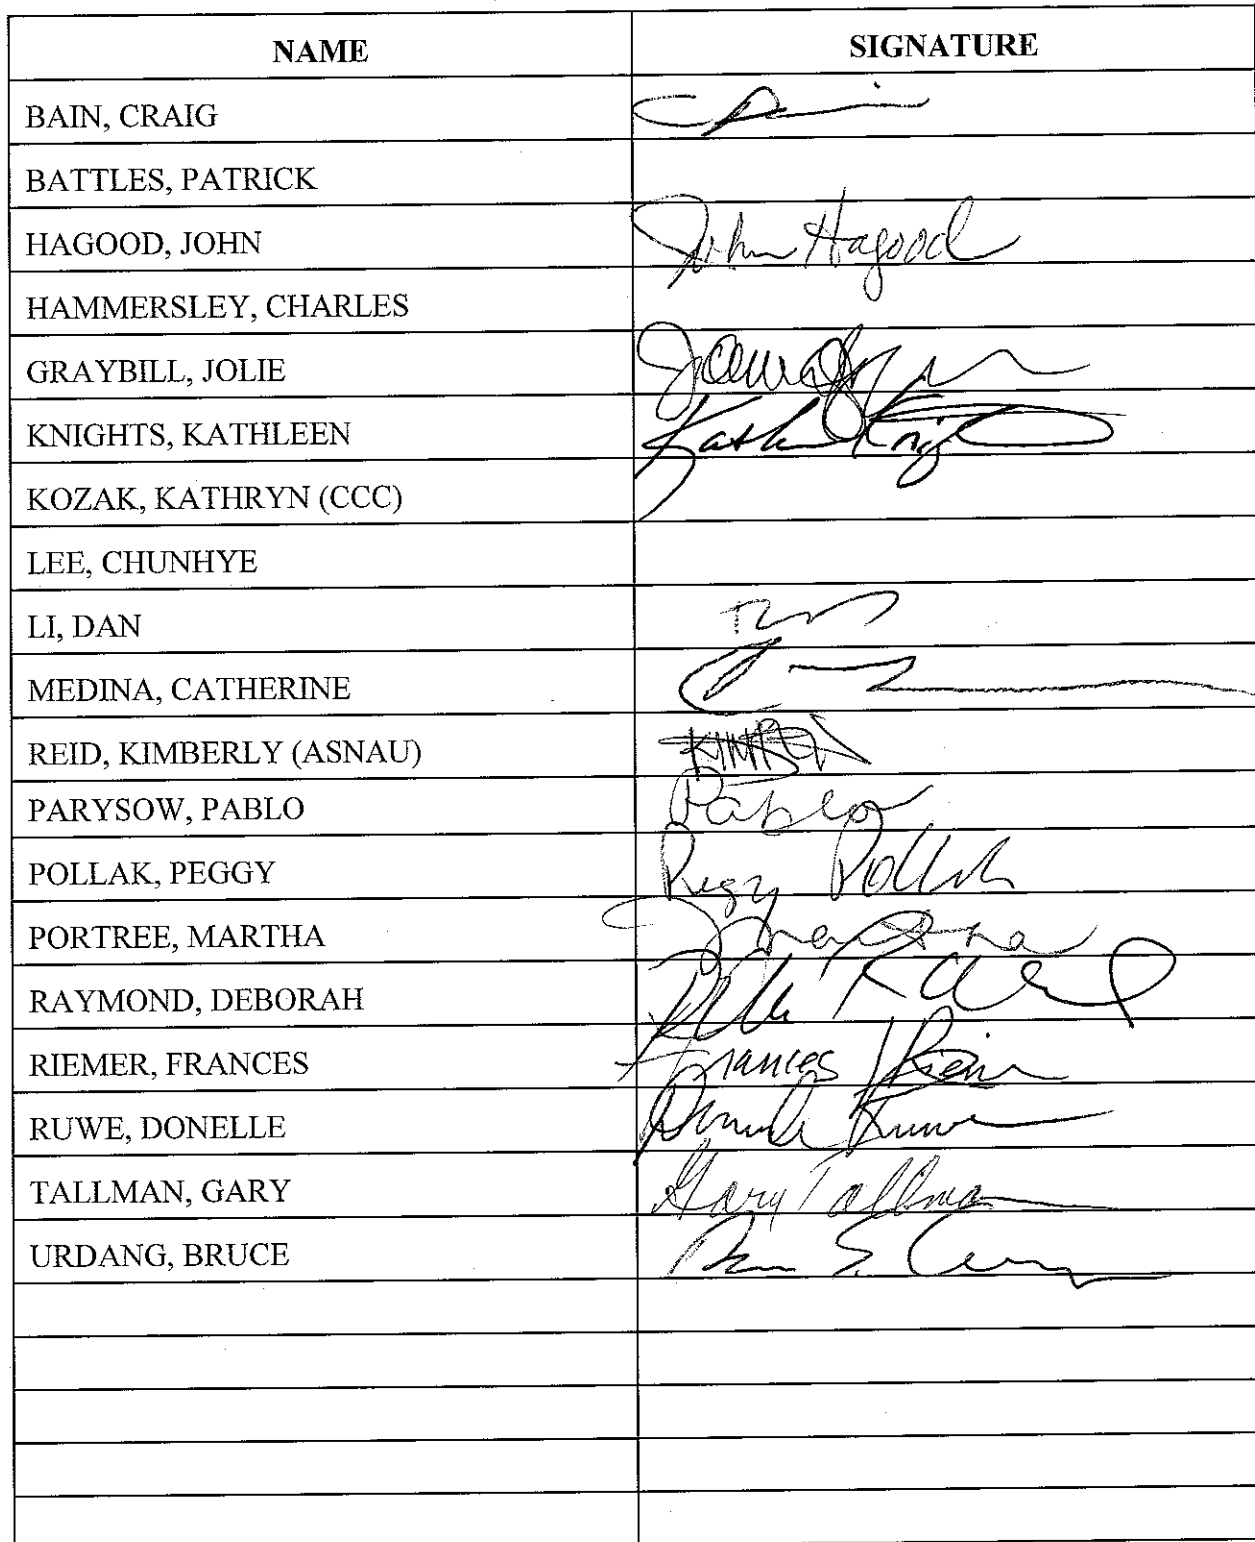 NAME SIGNATURE
BAIN, CRAIG
BATTLES, PATRICK
HAGOOD, JOHN John Hagood
HAMMERSLEY, CHARLES
GRAYBILL, JOLIE
KNIGHTS, KATHLEEN
KOZAK, KATHRYN (CCC)
LEE, CHUNHYE
LI, DAN
MEDINA, CATHERINE
REID, KIMBERLY (ASNAU)
PARYSOW, PABLO Pablo
POLLAK, PEGGY Peggy Pollak
PORTREE, MARTHA Martha
RAYMOND, DEBORAH
RIEMER, FRANCES Frances Riemer
RUWE, DONELLE Donelle Ruwe
TALLMAN, GARY Gary Tallman
URDANG, BRUCE